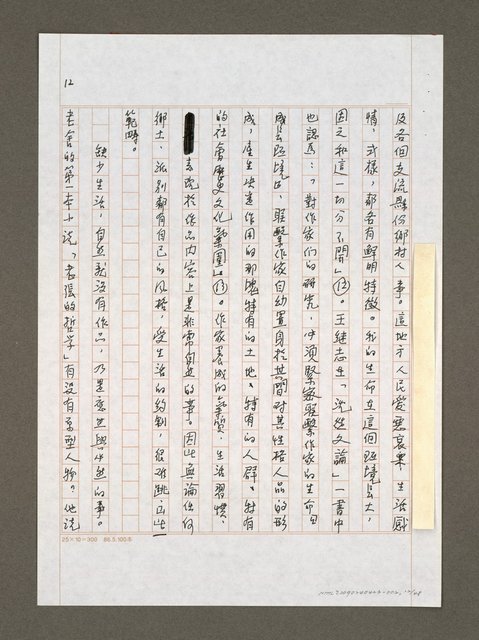 12
及各個支流縣份鄉村人事。這地方人民愛惡哀樂，生活感
情，式樣，都各有鮮明特徵。我的生命在這個環境長大，
因之和這一切分不開」⑫。王繼志在「沈從文論」一書中
也認為：「對作家們的研究，必須緊密聯繫作家的生命自
成長環境出，聯繫作家自幼置身於其間對其性格人品的形
成，產生決定作用的那塊特有的土地、特有的人群、特有
的社會歷史文化氛圍」⑬。作家養成的氣質，生活習慣，
表現於作品內容上是非常自然的事。因此無論任何
鄉土、派別都有自己的風格，受生活的約制，很難跳出此一
範疇。
缺少生活，自然就沒有作品，乃是應然與必然的事。
老舍的第一本小說「老張的哲學」有沒有原型人物。他說
25×10=300 86.5.100本